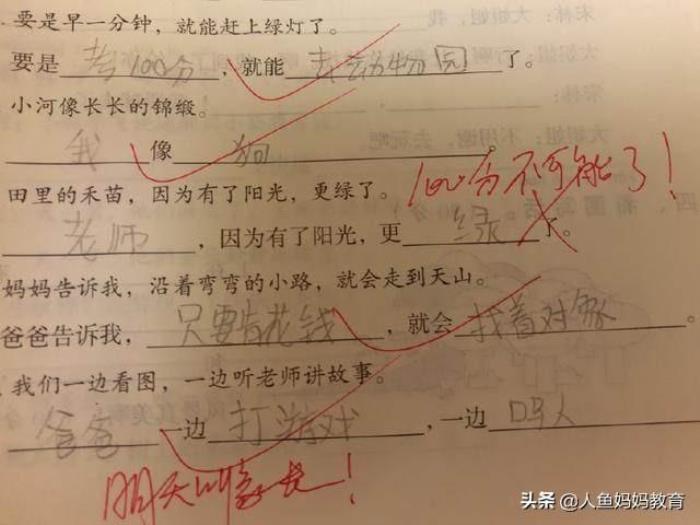 要是早一分钟，就能赶上绿灯了。
要是考100分，就能去动物园了。
小河像长长的锦缎。
我像狗。
100分不可能了！
田里的禾苗，因为有了阳光，更绿了。
老师，因为有了阳光，更绿了。
妈妈告诉我，沿着弯弯的小路，就会走到天山。
爸爸告诉我，只要肯花钱，就会找着对象。
我们一边看图，一边听老师讲故事。
爸爸一边打游戏，一边吗人
明天叫家长！
头条 @人鱼妈妈教育